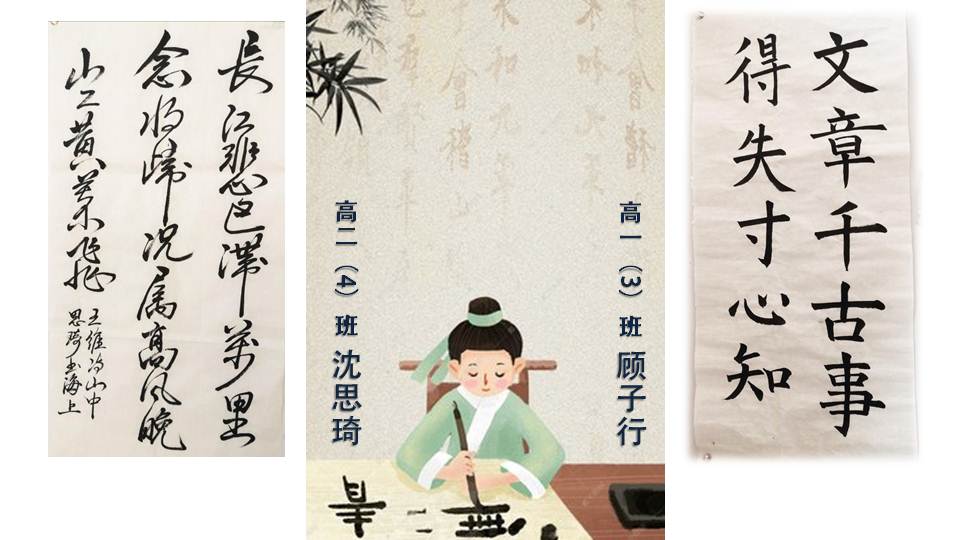 文章千古事
得失寸心知
高一（3）班 顾子行
高二（4）班 沈思琦
長江悲已滯萬里
念將歸況属高風晚
山山黄葉飛
王維 山中
思琦書海上